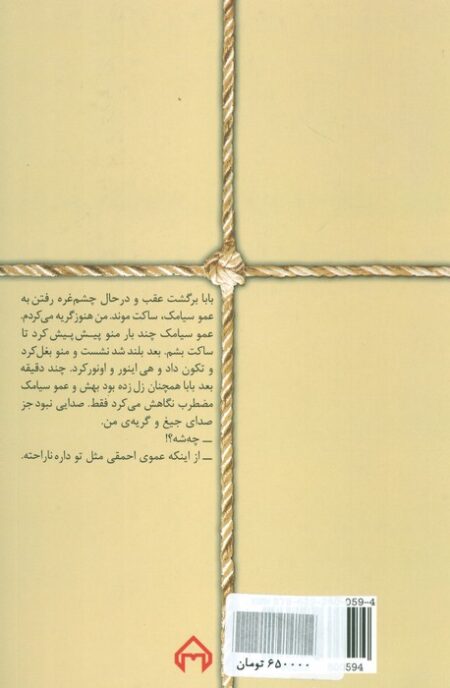 بابا برگشت عقب و درحال چشم‌غره رفتن به
عمو سیامک، ساکت موند. من هنوز گریه می‌کردم.
عمو سیامک چند بار منو پیش‌پیش کرد تا
ساکت بشم. بعد بلند شد نشست و منو بغل کرد
و تکون داد و هی اینور و اونور کرد. چند دقیقه
بعد بابا همچنان زل زده بود بهش و عمو سیامک
مضطرب نگاهش می‌کرد فقط. صدایی نبود جز
صدای جیغ و گریه‌ی من.
ــ چه‌شه؟!
ــ از اینکه عموی احمقی مثل تو داره ناراحته.
059-4
۶۵۰۰۰۰ تومان
594